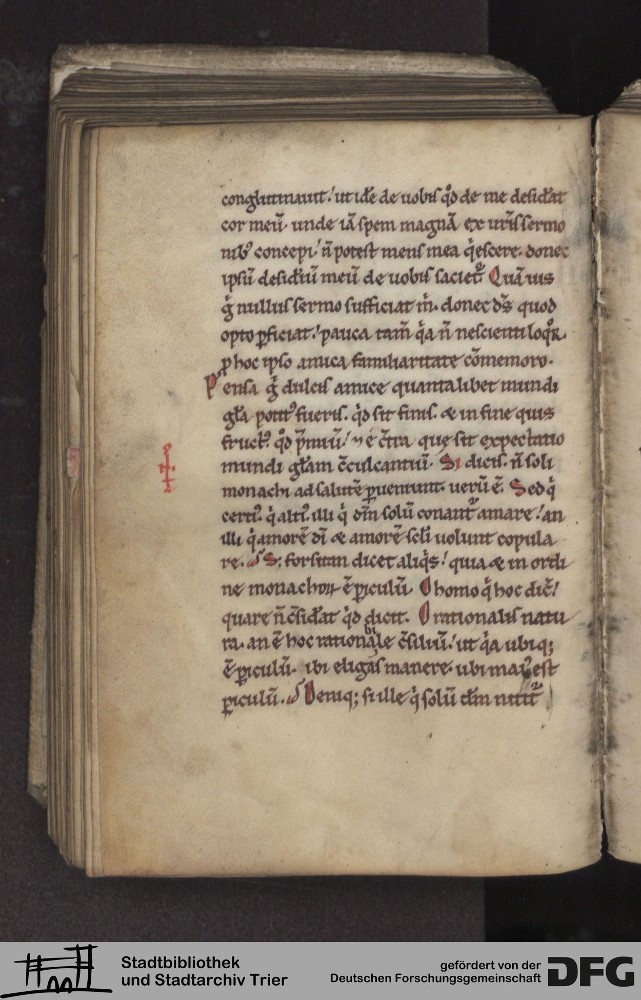 conglutinauit. ut id͂e de uobis q̊d de me desid̾at
cor meū. unde iā spem magnā ex ur̄is sermo
nibꝰ concepi. n̄ potest mens mea q̇escere. donec
ipsū desid̾iū meū de uobis sacietᷣ. Quāuis
g̊ nullus sermo sufficiat m̄. donec d̄s quod
opto ꝑficiat. pauca tam̄ q̇a n̄ nescienti loqᷣ.
ꝑ hoc ipso amica familiaritate cōmemoro.
Pensa g̊ dulcis amice quantalibet mundi
gl̄a potitꝰ fueris. q̇d sit finis. & in fine quis
fructꝰ. q̊d p̄miū. ⁊ ē c̄tra que sit expectatio
mundi gl̄am c̄culcantiū. Si dicis. n̄ soli
monachi ad salutē ꝑueniunt. uerū ē. Sed q̇
certiꝰ. q̇ altiꝰ. illi q̇ dm̄ solū conantᷣ amare. an
illi q̇ amorē dī & amorē sc̄li uolunt copula
re. S; forsitan dicet aliq̇s. quia & in ordi
ne monachoꝝ ē ꝑiculū. O homo q̇ hoc dic̄.
quare n̄ c̄sid̾at q̇d dicit. O rationalis natu
ra. an ē hoc rationabile c̄siliū. ut q̇a ubiq;
ē ꝑiculū. ibi eligas manere. ubi maiꝰ est
ꝑiculū. Deniq; si ille q̇ solū dm̄ nititᷣ
Stadtbibliothek
und Stadtarchiv Trier
gefördert von der
Deutschen Forschungsgemeinschaft
DFG